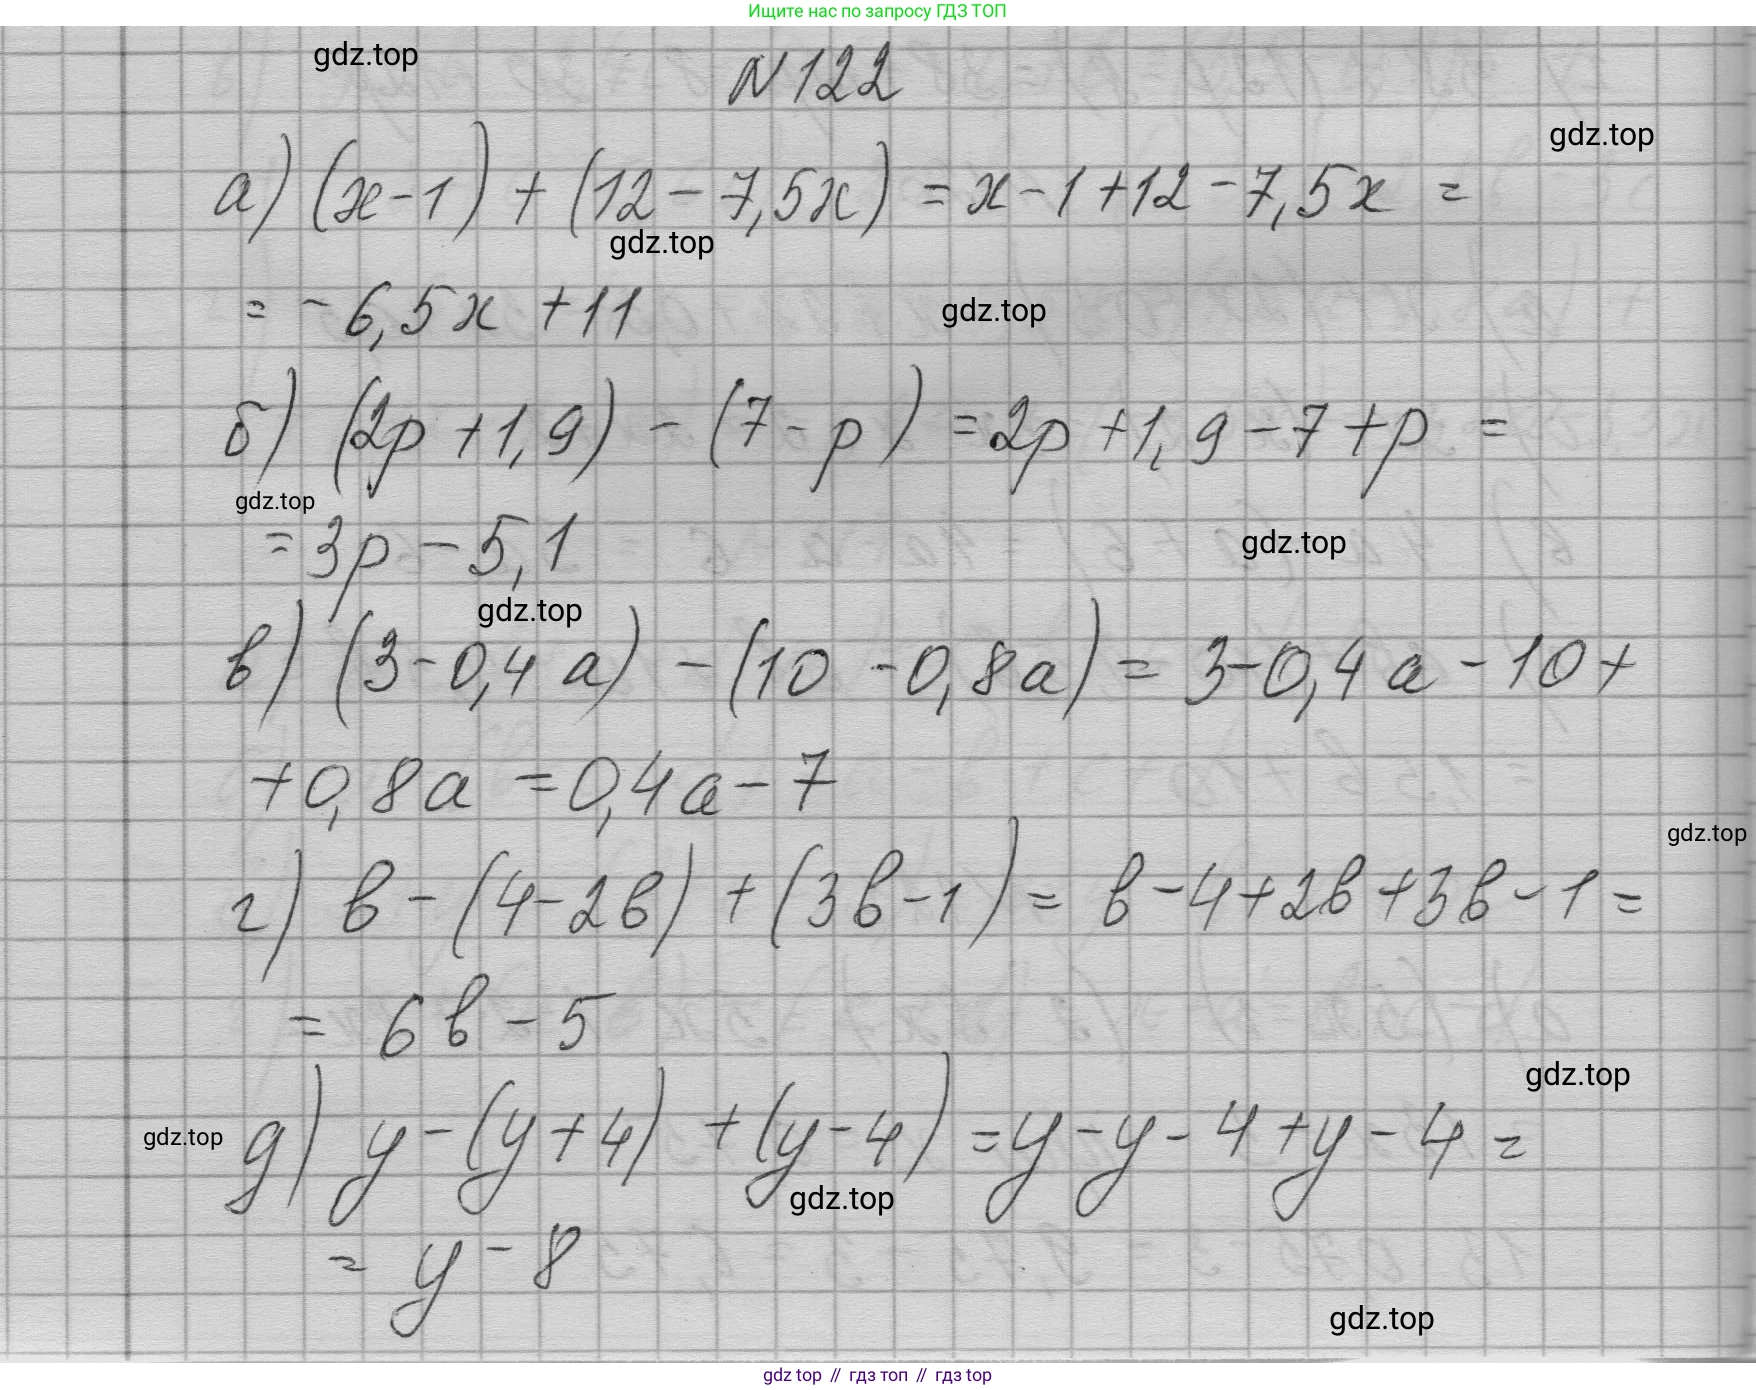 Ищите нас по запросу ГДЗ ТОП
gdz.top
N 122
gdz.top
а) (x-1) + (12 - 7,5x) = x - 1 + 12 - 7,5x =
gdz.top
= - 6,5x + 11
gdz.top
б) (2p + 1,9) - (7 - p) = 2p + 1,9 - 7 + p =
gdz.top
= 3p - 5,1
gdz.top
gdz.top
в) (3 - 0,4a) - (10 - 0,8a) = 3 - 0,4a - 10 +
+ 0,8a = 0,4a - 7
gdz.top
г) b - (4 - 2b) + (3b - 1) = b - 4 + 2b + 3b - 1 =
= 6b - 5
gdz.top
gdz.top
д) y - (y + 4) + (y - 4) = y - y - 4 + y - 4 =
gdz.top
= y - 8
gdz.top
gdz top // гдз топ // гдз top